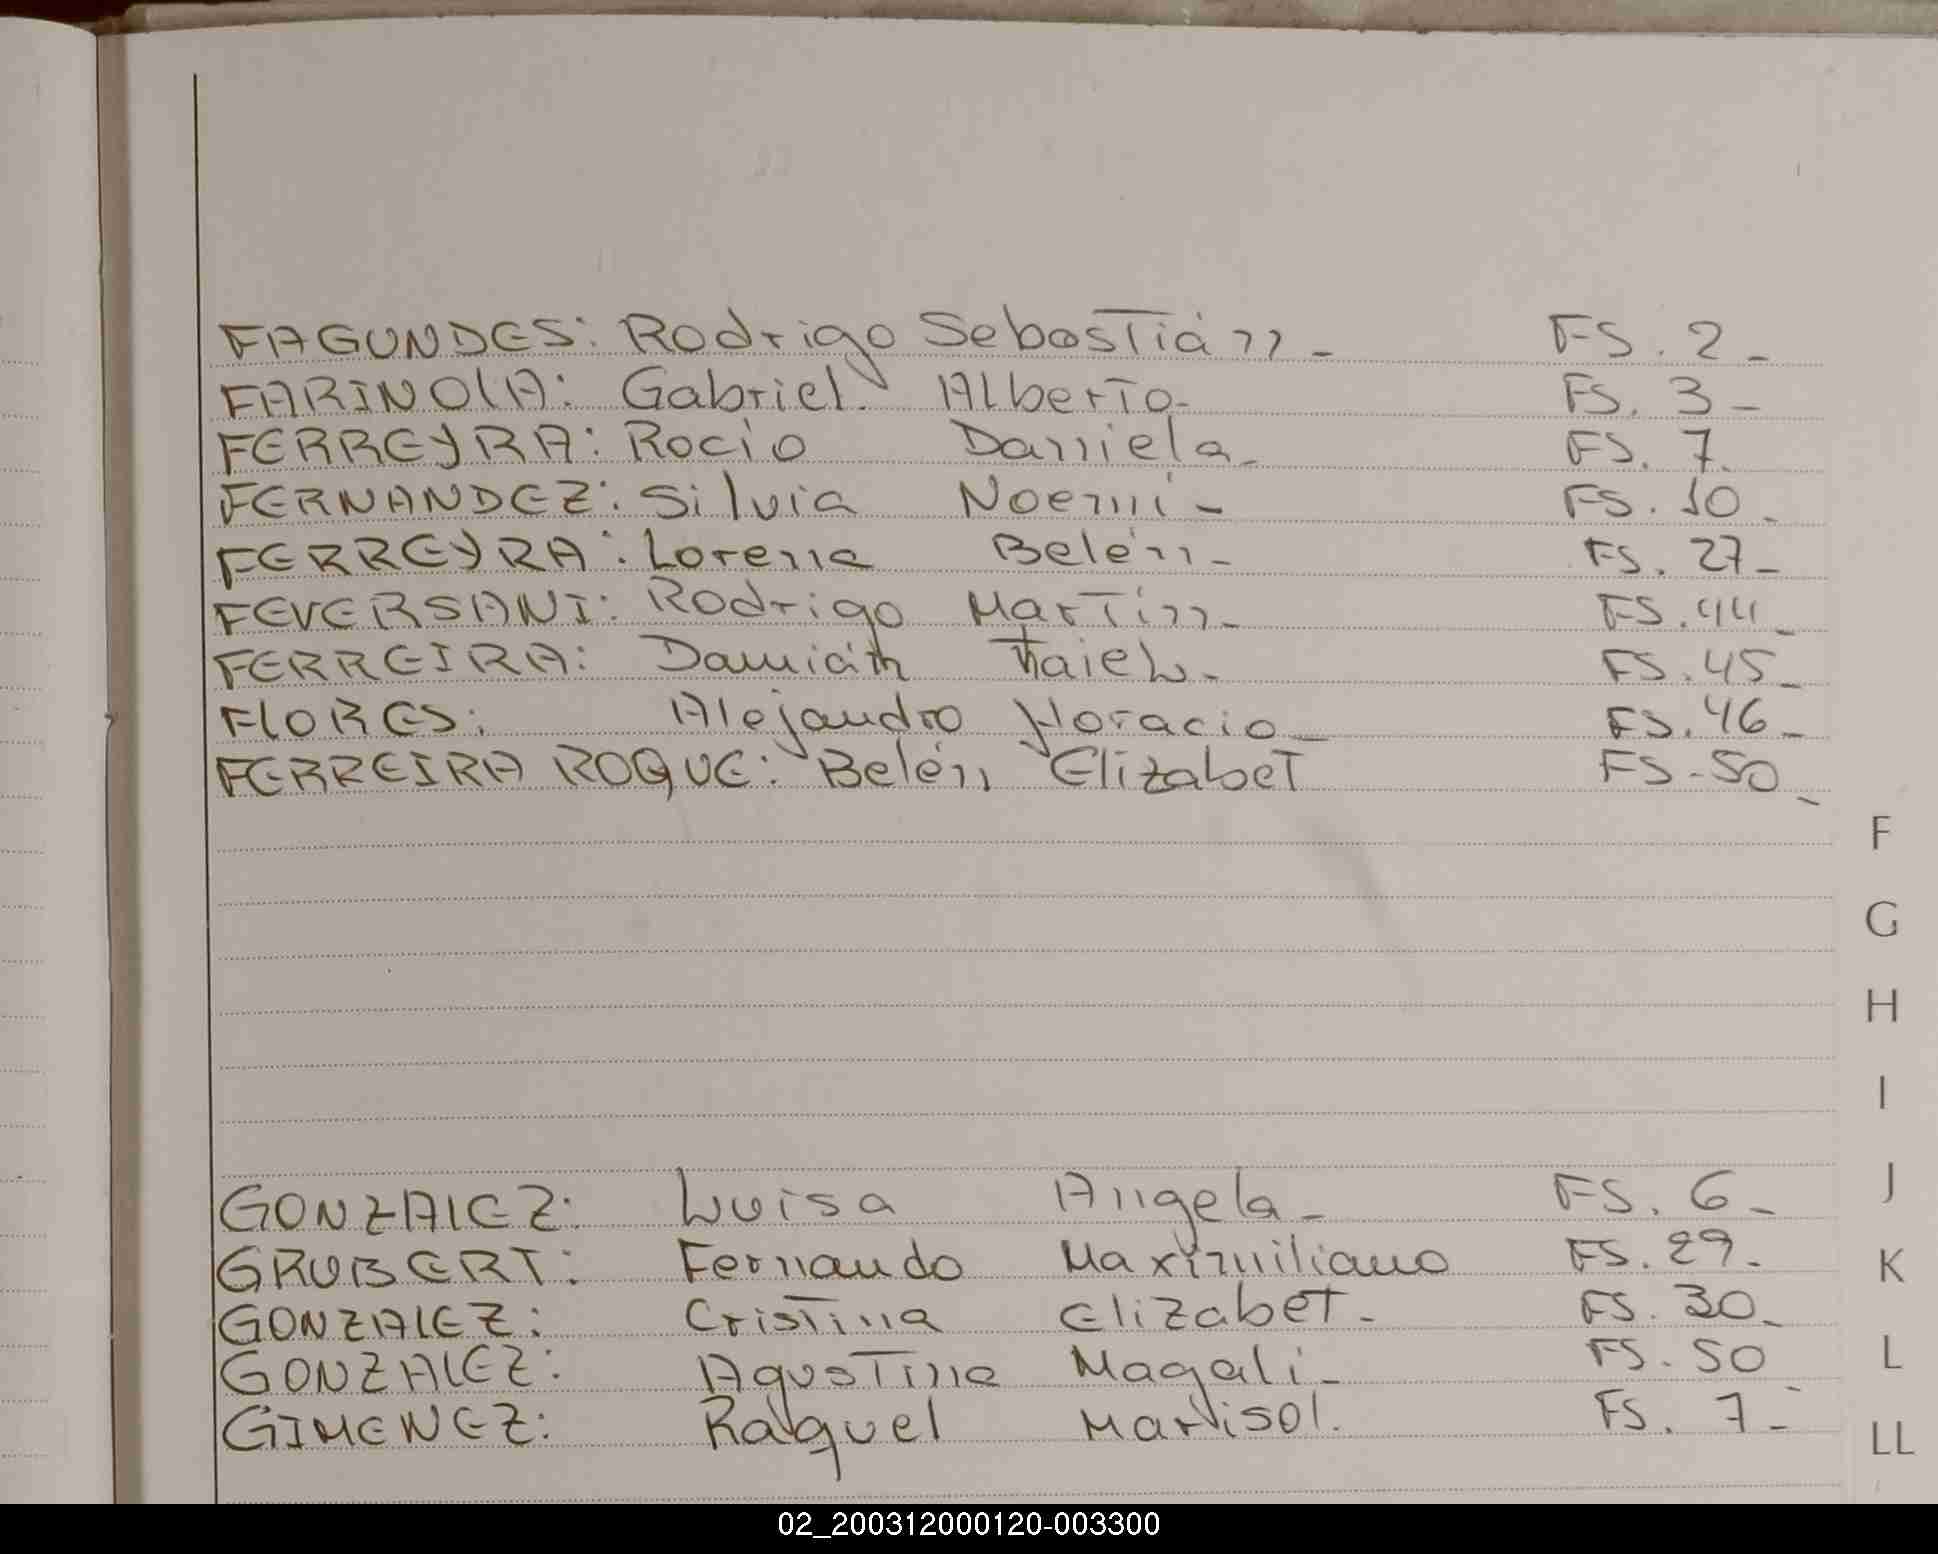 FAGUNDES: Rodrigo Sebastián - FS. 2 -
FARINOLA: Gabriel Alberto - FS. 3 -
FERREYRA: Rocio Daniela - FS. 7.
FERNANDEZ: Silvia Noemi - FS. 10 -
FERREYRA: Lorena Belén - FS. 27 -
FEVERSANI: Rodrigo Martin - FS. 44 -
FERREIRA: Damián - FS. 45 -
FLORES: Alejandro Horacio - FS. 46 -
FERREIRA ROQUE: Belén Elizabet FS - 50 -
F
G
H
I
GONZALEZ: Luisa Angela - FS. 6 -
J
GRUBERT: Fernando Maximiliano FS. 29 -
K
GONZALEZ: Cristina Elizabet - FS. 30 -
GONZALEZ: Agustina Magali - FS. 50 -
L
GIMENEZ: Raquel Marisol. FS. 7 -
LL
02_200312000120-003300